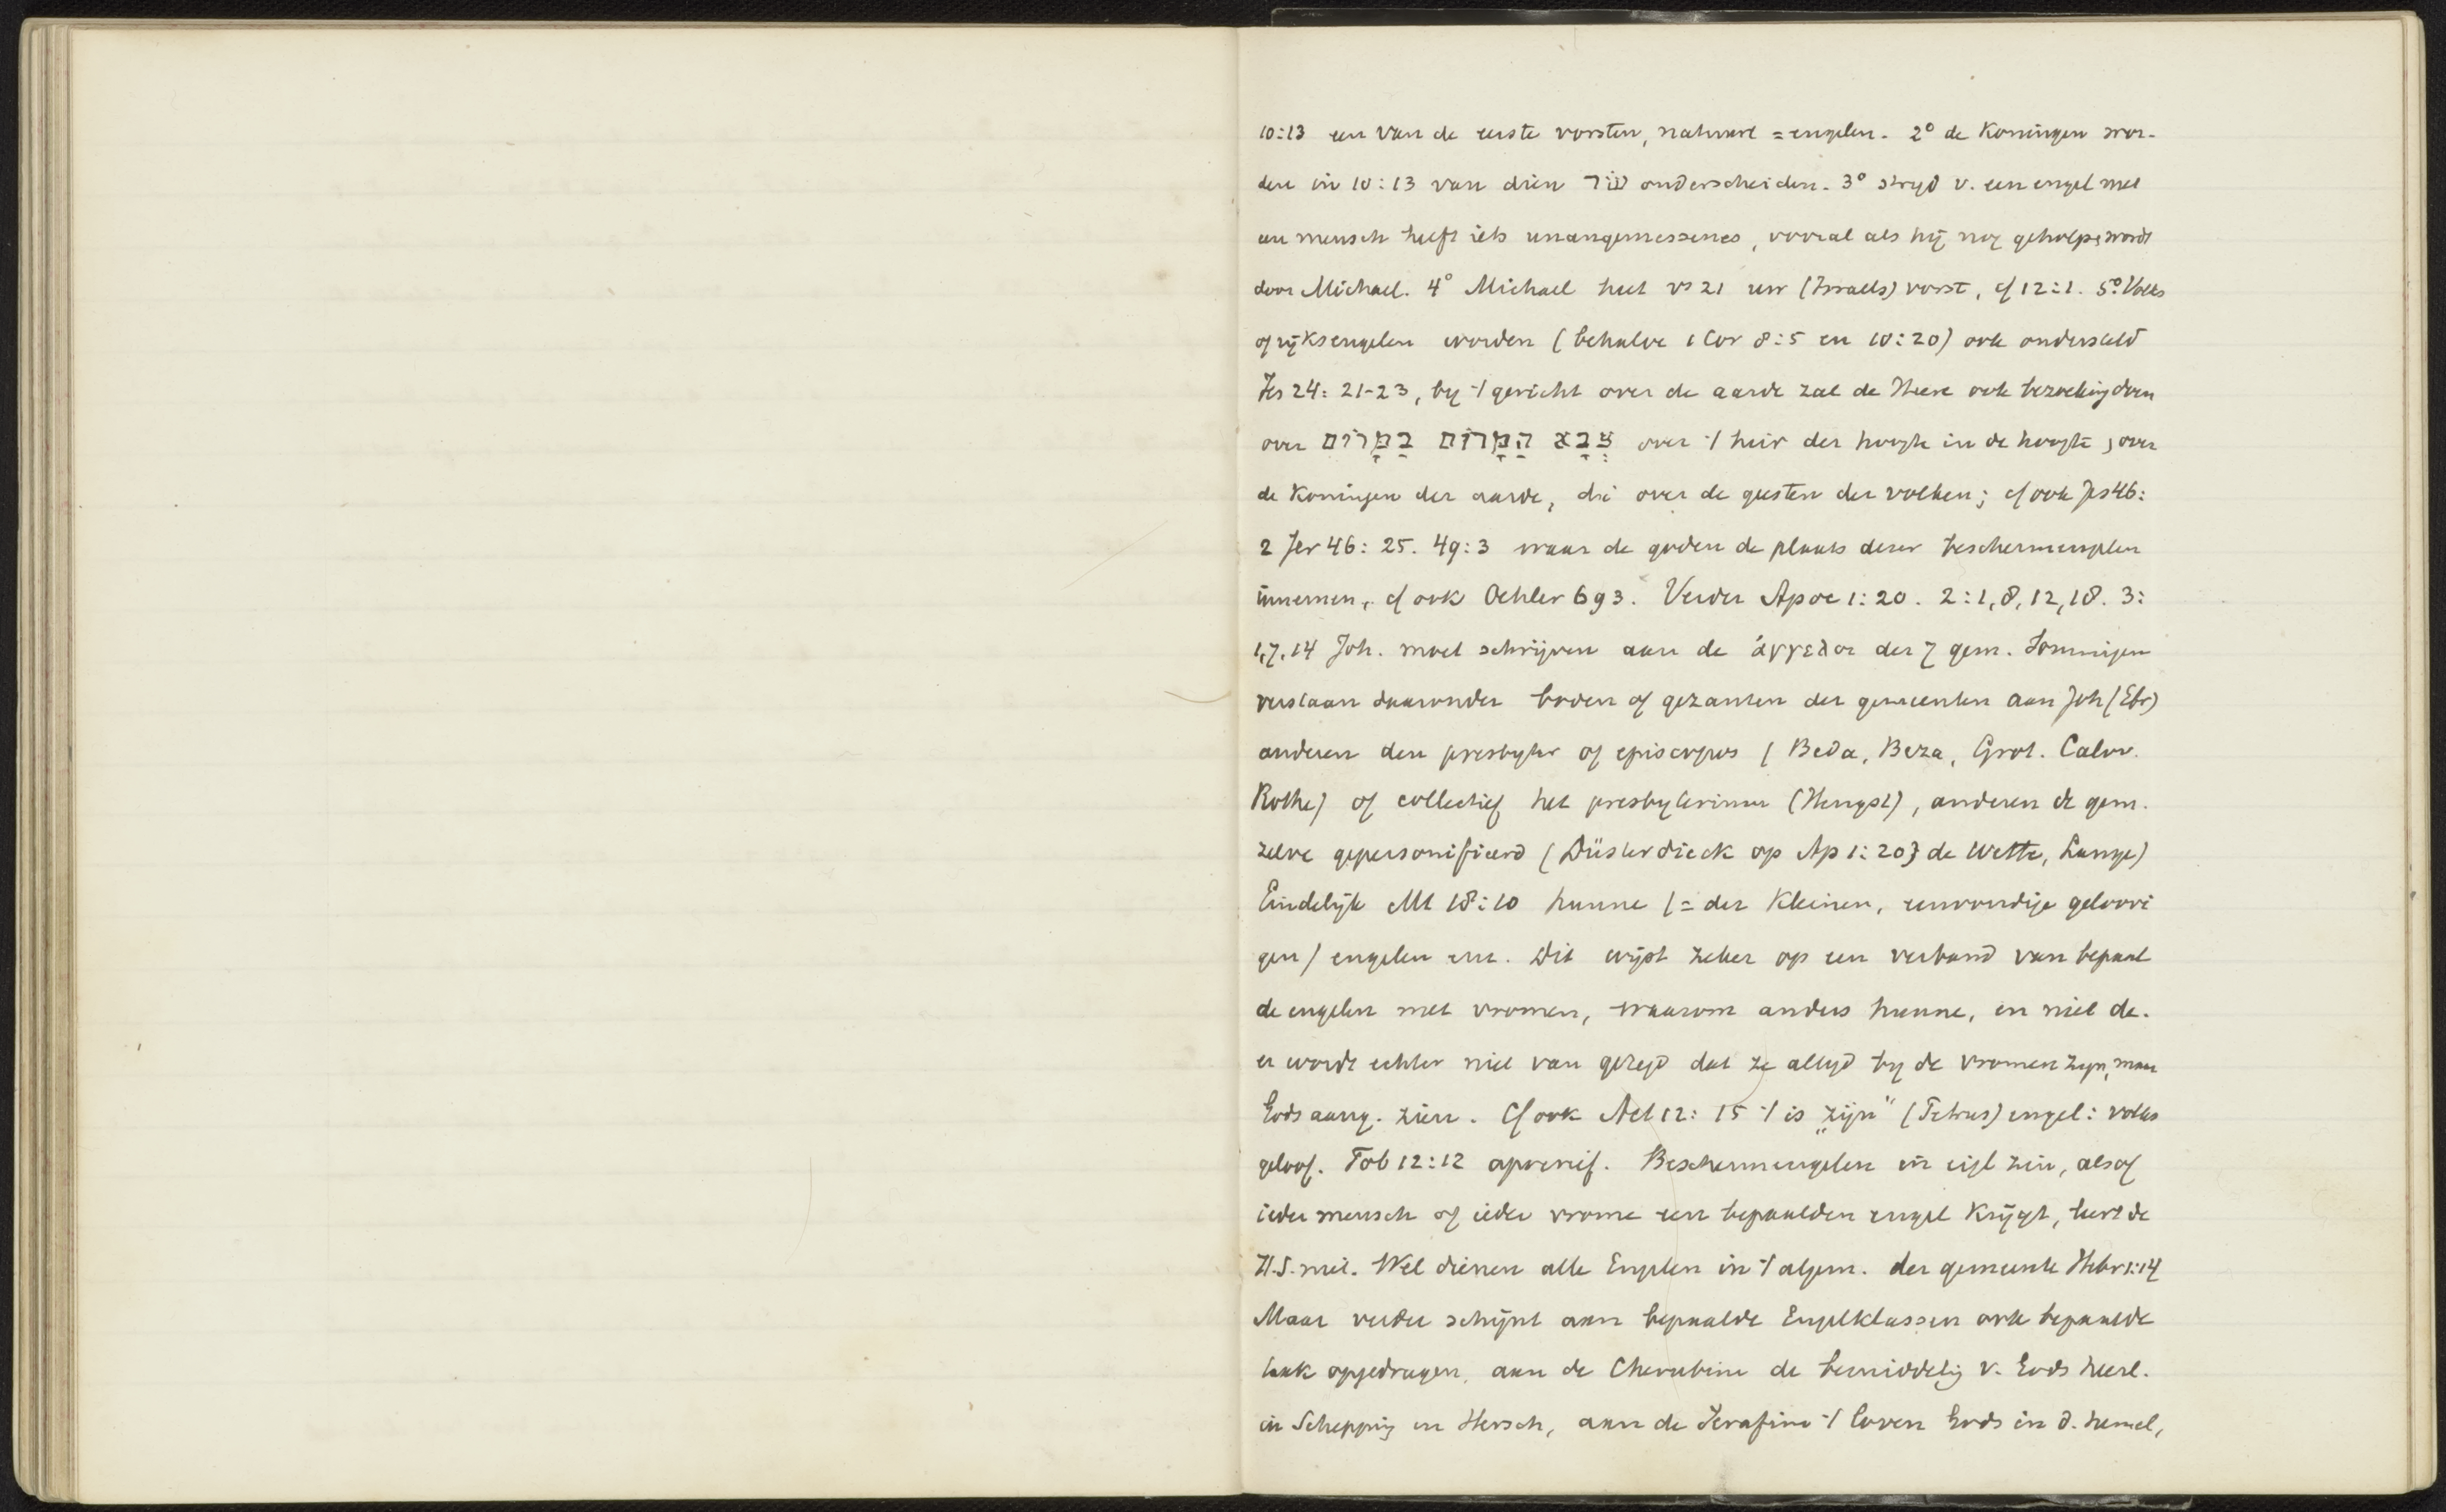 10:13 een van de eerste vorsten, natuurl = engelen. 2° de Koningen wor-
den in 10:13 van dien שׂר onderscheiden. 3° stryd v. een engel met
een mensch heeft iets unangemessenes, vooral als hij nog geholpen wordt
door Michael. 4° Michael heet vs 21 uw (Israels) vorst, cf 12:1. 5° Volks
of rijksengelen worden (behalve 1 Cor 8:5 en 10:20) ook ondersteld
Jes 24: 21-23, by 't gericht over de aarde zal de Heere ook bezoeking doen
over צְבָא הַמָּרוֹם בַּמָּרוֹם over 't heir der hoogte in de hoogte, over
de Koningen der aarde, di over de geesten der volken; cf ook Jes 46:
2 Jer 46: 25. 49:3 waar de goden de plaats dezer beschermengelen
innemen, cf ook Oehler 693. Verder Apoc 1:20. 2:1,8,12,18. 3:
1,7,14 Joh. moet schrijven aan de ἀγγελοι der 7 gem. Sommigen
verstaan daaronder boden of gezanten der gemeenten aan Joh (Ebr)
anderen den presbyter of episcopus (Beda, Beza, Grot. Calov.
Rothe) of collectief het presbyterium (Hengst), anderen de gem.
zelve gepersonifieerd (Düsterdieck op Ap 1:20} de Wette, Lange)
Eindelijk Mt 18:10 hunne (= der Kleinen, eenvoudige geloovi
gen) engelen enz. Dit wijst zeker op een verband van bepaal
de engelen met vromen, waarom anders hunne, en niet de.
er wordt echter niet van gezegd dat ze altyd by de vromen zyn, maar
Gods aang. zien. Cf ook Act 12: 15 't is „zijn" (Petrus) engel: volks
geloof. Tob 12:12 apocrief. Beschermengelen in eigl zin, alsof
ieder mensch of ieder vrome een bepaalden engel krijgt, leert de
H.S. niet. Wel dienen alle Engelen in 't algem. der gemeente Hebr 1:14
Maar verder schijnt aan bepaalde Engelklassen ook bepaalde
taak opgedragen, aan de Cherubim de bemiddelig v. Gods heerl.
in Schepping en Hersch, aan de Serafim 't loven Gods in d. hemel,